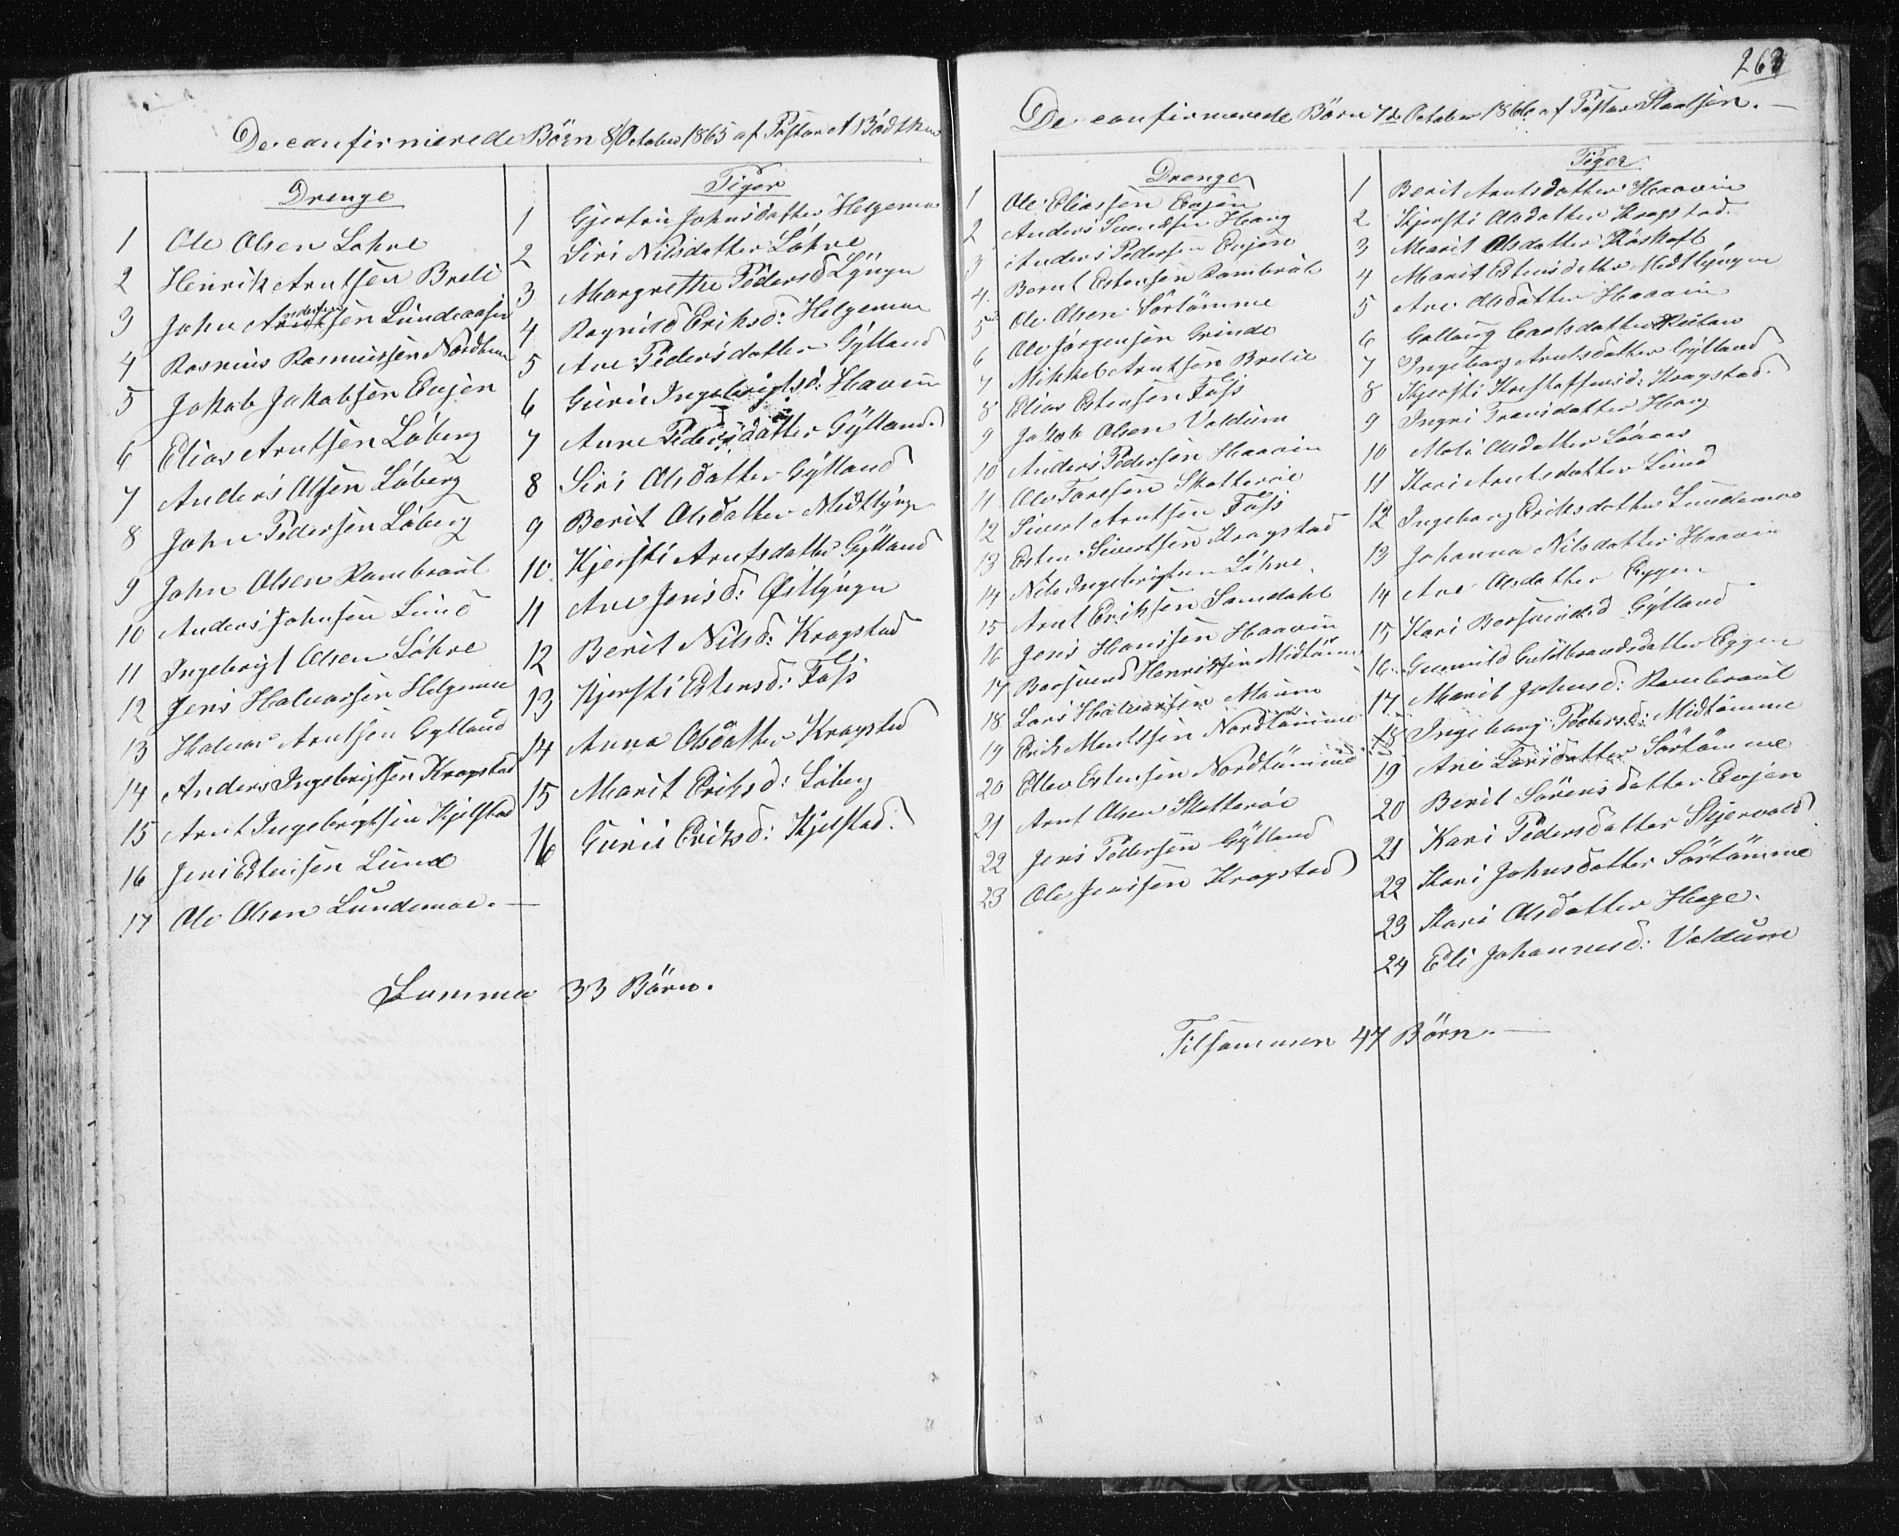 De confirmerede Börn 8/October 1865 af Pastor A Bödtker
Drenge
1 Ole Olsen Løhre
2 Henrik Arntsen Breli
3 John Andersen Lundeaasen
4 Rasmus Rasmussen Nordtømme
5 Jakob Jakobsen Evjen
6 Elias Arntsen Løberg
7 Anders Olsen Løberg
8 John Pedersen Løberg
9 John Olsen Rambraut
10 Anders Johnsen Lund
11 Ingebrigt Olsen Løhre
12 Jens Halvorsen Helgemoe
13 Halvor Arntsen Gylland
14 Anders Ingebrigtsen Kragstad
15 Arnt Ingebrigtsen Kjelstad
16 Jens Estensen Lund
17 Ole Olsen Lundemoe. —
Piger
1 Gjertru Johnsdatter Helgemoe
2 Siri Nilsdatter Løhre
3 Margrethe Pedersd Lyngen
4 Ragnild Eriksd: Helgemoe
5 Ane Pedersdatter Gylland
6 Guru Ingebrigtsd: Haavin
7 Anne Pedersdatter Gylland.
8 Siri Olsdatter Gylland
9 Berit Olsdatter Midtlyng
10. Kjersti Arntsdatter Gylland
11 Ane Jensd: Østlyngen
12 Berit Nilsd: Kragstad
13 Kjersti Estensd: Foss
14 Anna Olsdatter Kragstad
15 Marit Eriksd: Løberg
16 Guru Eriksd: Kjelstad.
Summa 33 Börn.
263
De confirmerede Börn 7de October 1866 af Pastor Steatsen. —
Drenge
1 Ole Eliassen Evjen
2 Anders Svendsen Haug
3 Anders Pedersen Evjen
4. Bernt Estensen Rambraut
5 Ole Olsen Sörtömme
6 Ole Jørgensen Grinde
7 Mikkel Arntsen Brelie
8 Elias Estensen Foss
9 Jakob Olsen Valdum
10 Anders Pedersen Haavin
11. Ole Toresen Skatterøe
12 Sivert Arntsen Foss
13 Esten Sivertsen Kragstad
14 Nils Ingebrigtsen Løhre.
15 Arnt Eriksen Samdahl
16 Jens Hansen Haavin
17 Baarsvend Henriksen Midtømme
18 Lars Halvorsen Moum
19 Erik Mentsen Nordtømme
20 Ellev Estensen Nordtømme
21 Arnt Olsen Skatterøe
22 Jens Pedersen Gylland
23 Ole Jensen Kragstad
Piger
1 Berit Arntsdatter Haavin
2 Kjersti Olsdatter Kragstad.
3 Marit Olsdatter Røskaft
4 Marit Estensdatter Midtlyngen
5 Ane Olsdatter Haavin
6 Golborg Carlsdatter Reitan
7 Ingeborg Arntsdatter Gylland
8 Kjersti Kristoffersd: Kragstad.
9 Ingri Tronsdatter Haug
10 Mali Olsdatter Løaas
11 Kari Arntsdatter Lund
12 Ingeborg Eriksdatter Lundemoe
13 Johanna Nilsdatter Haavin
14 Ane Olsdatter Eggen
15 Kari Borsvendsd Gylland
16. Gunnild Guldbrandsdatter Eggen
17. Marit Johnsd: Rambraut
18 Ingeborg Pedersd: Midtømme
19 Ane Larsdatter Sörtömme
20 Berit Sörensdatter Evjen
21 Kari Pedersdatter Skjervold
22 Kari Johnsdatter Sörtömme
23 Kari Olsdatter Hage.
24 Eli Johannesd: Valdum
Tilsammen 47 Börn. —